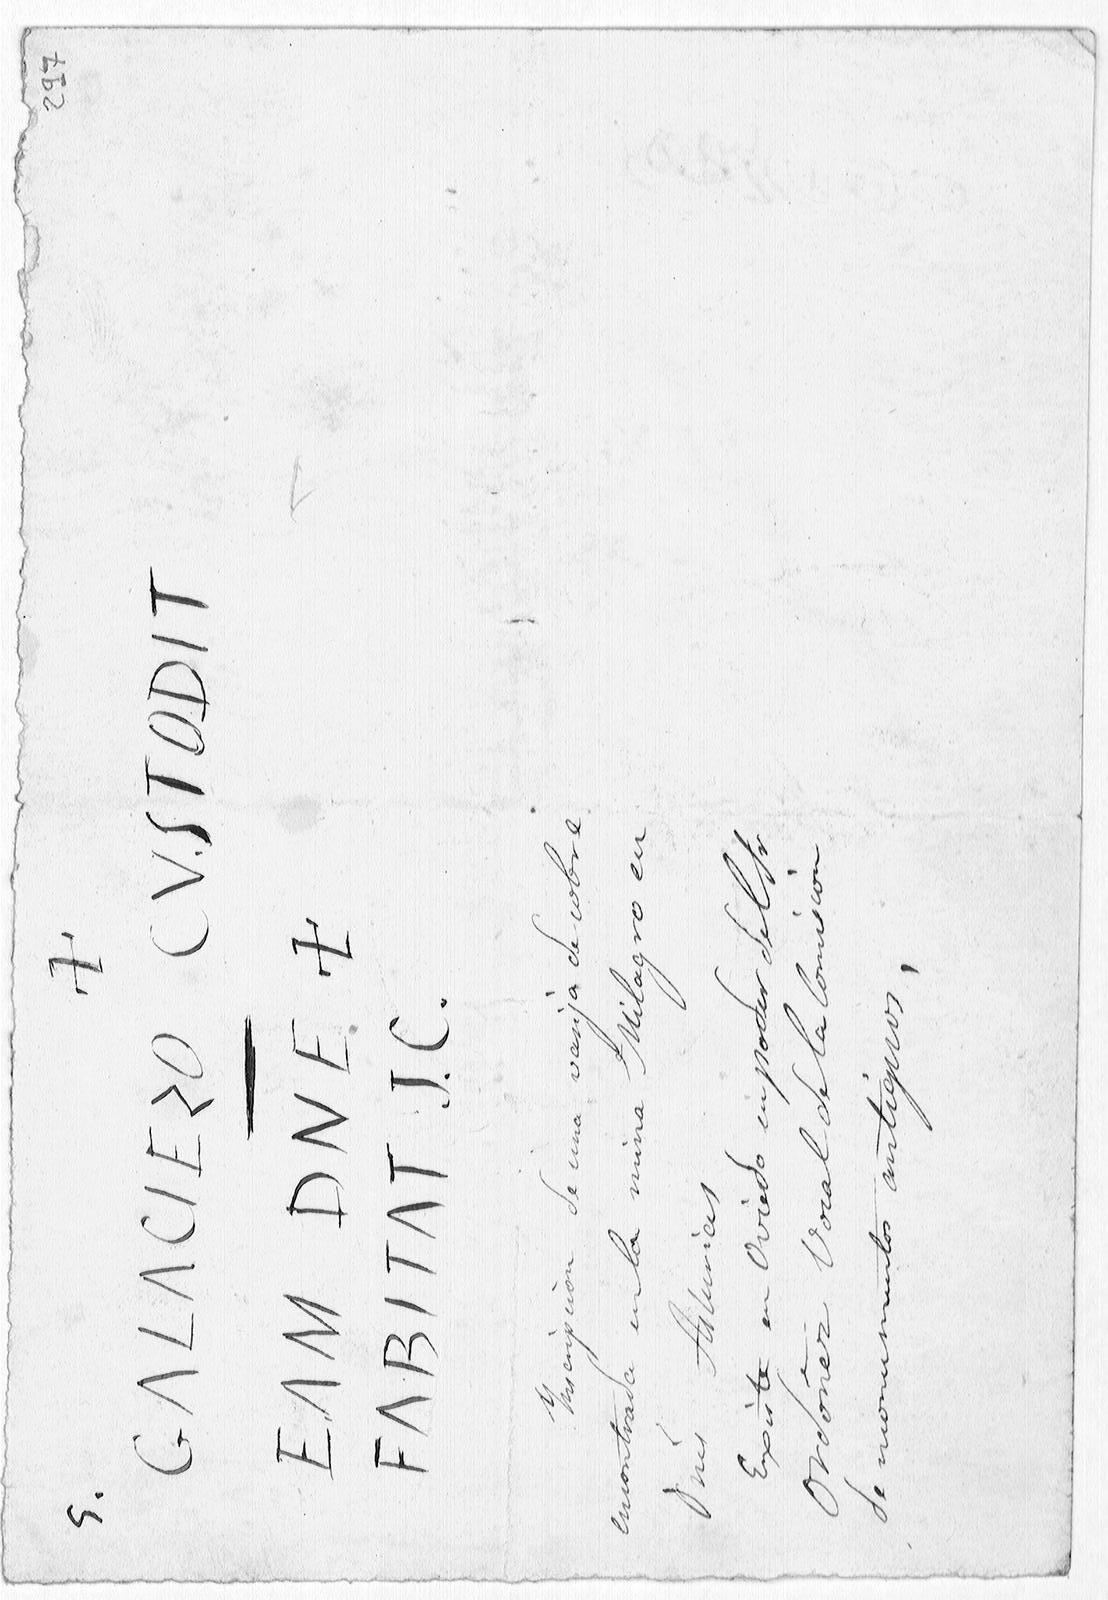 297
5.
GALACIERO CVSTODIT
EAM DNE
FABITAT J.C.
Ynscripcion de una vasija de cobre
encontrada en la mina Milagro en
Onís Asturias
Existe en Oviedo en poder del Sr
Ordoñez Vocal de la Comision
de monumentos antiguos,